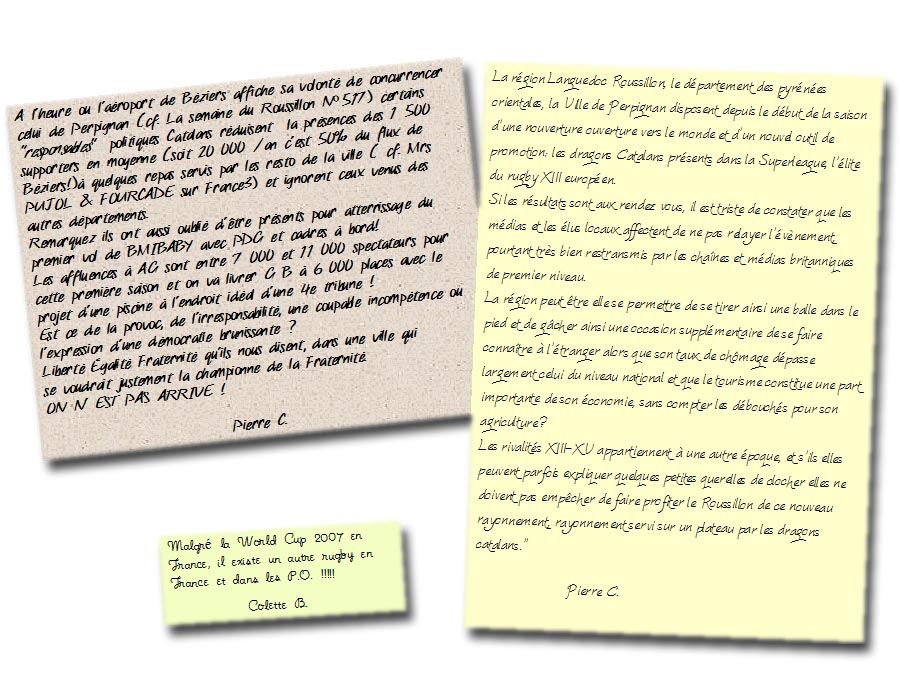 A l'heure ou l'aéroport de Béziers affiche sa volonté de concurrencer
celui de Perpignan (cf. La semaine du Roussillon N° 517) certains
"responsables" politiques Catalans réduisent la présences des 1 500
supporters en moyenne (soit 20 000 /an c'est 50% du flux de
Béziers!)à quelques repas servis par les resto de la ville ( cf. Mrs
PUJOL & FOURCADE sur France3) et ignorent ceux venus des
autres départements.
Remarquez ils ont aussi oublié d'être présents pour atterrissage du
premier vol de BMIBABY avec PDG et cadres à bord!
Les affluences à AG sont entre 7 000 et 11 000 spectateurs pour
cette première saison et on va livrer G B à 6 000 places avec le
projet d'une piscine à l'endroit idéal d'une 4e tribune !
Est ce de la provoc, de l'irresponsabilité, une coupable incompétence ou
l'expression d'une démocratie brunissante ?
Liberté Égalité Fraternité qu'ils nous disent, dans une ville qui
se voudrait justement la championne de la Fraternité
ON N EST PAS ARRIVE !
Pierre C.
La région Languedoc Roussillon, le département des pyrénées
orientales, la Ville de Perpignan disposent depuis le début de la saison
d'une nouverture ouverture vers le monde et d'un nouvel outil de
promotion: les dragons Catalans présents dans la Superleague, l'élite
du rugby XIII européen.
Si les résultats sont aux rendez vous, il est triste de constater que les
médias et les élus locaux affectent de ne pas relayer l'évènement,
pourtant très bien restransmis par les chaînes et médias britanniques
de premier niveau.
La région peut être elle se permettre de se tirer ainsi une balle dans le
pied et de gâcher ainsi une occasion supplémentaire de se faire
connaître à l'étranger alors que son taux de chômage dépasse
largement celui du niveau national et que le tourisme constitue une part
importante de son économie, sans compter les débouchés pour son
agriculture?
Les rivalités XIII-XV appartiennent à une autre époque, et s'ils elles
peuvent parfois expliquer quelques petites querelles de clocher elles ne
doivent pas empêcher de faire profiter le Roussillon de ce nouveau
rayonnement, rayonnement servi sur un plateau par les dragons
catalans."
Pierre C.
Malgré la World Cup 2007 en
France, il existe un autre rugby en
France et dans les P.O. !!!!!
Colette B.